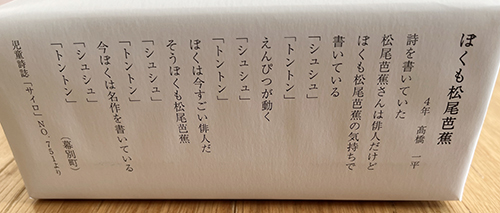 ぼくも松尾芭蕉
4年　高橋　一平
詩を書いていた
松尾芭蕉さんは俳人だけど
ぼくも松尾芭蕉の気持ちで
書いている
「シュシュ」
「トントン」
えんぴつが動く
「シュシュ」
「トントン」
ぼくは今すごい俳人だ
そうぼくも松尾芭蕉
「シュシュ」
「トントン」
今ぼくは名作を書いている
「シュシュ」
「トントン」
（幕別町）
児童詩誌「サイロ」NO.751より